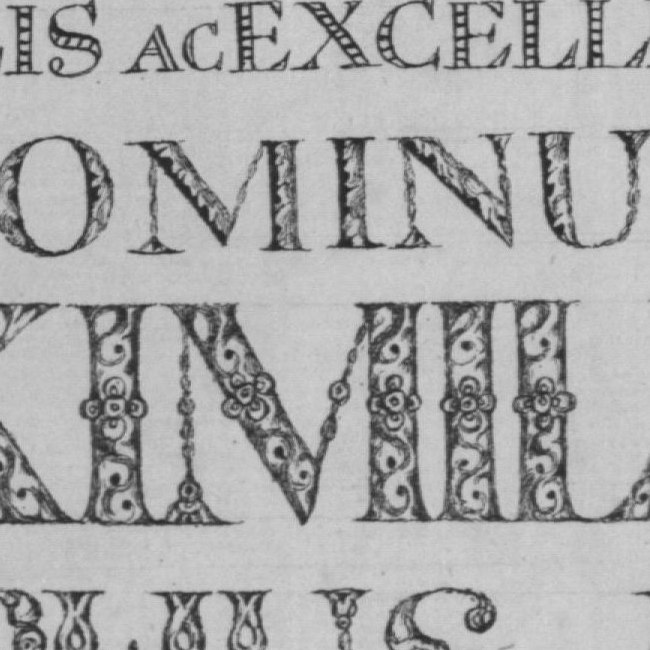 LIS AC EXCELL
OMINU
XIMILI